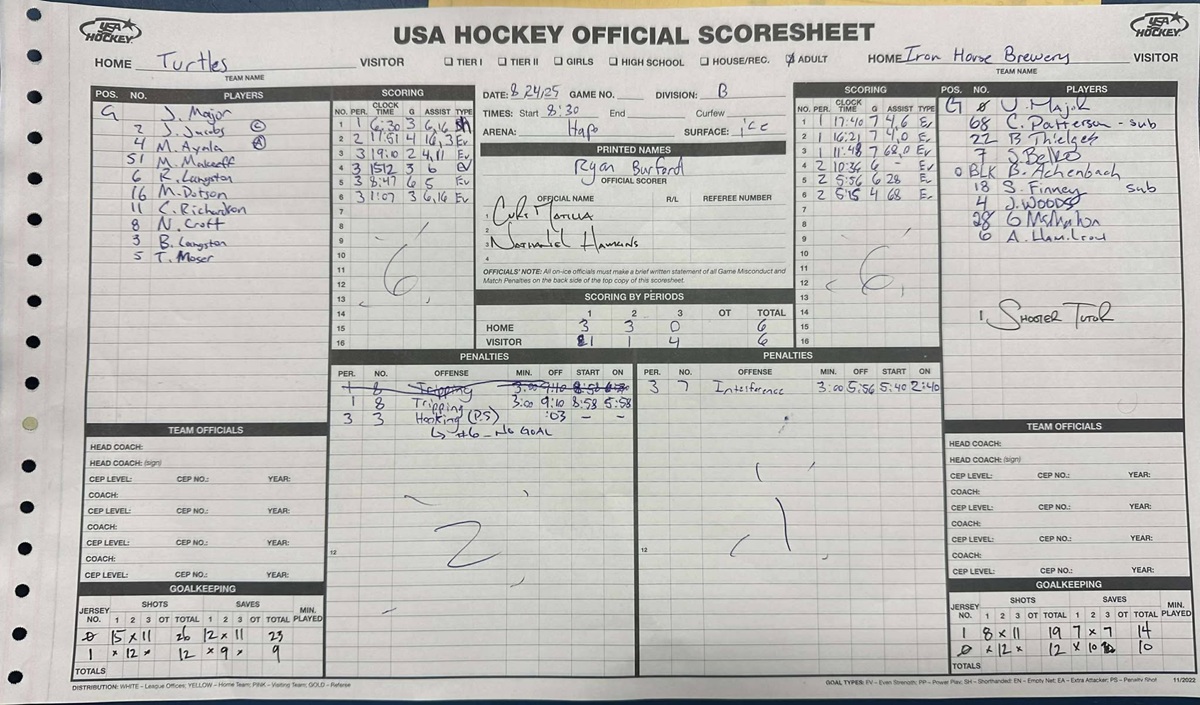 USA HOCKEY
USA HOCKEY OFFICIAL SCORESHEET
USA HOCKEY
HOME Turtles VISITOR
TEAM NAME
☐ TIER I ☐ TIER II ☐ GIRLS ☐ HIGH SCHOOL ☐ HOUSE/REC. ☑ ADULT
HOME Iron Horse Brewery VISITOR
TEAM NAME
POS. NO. PLAYERS
G J. Major
2 J. Jacobs C
4 M. Ayala A
51 M. Makeeff
6 R. Langston
16 M. Dotson
11 C. Richardson
8 N. Croft
3 B. Langston
5 T. Moser
SCORING
NO. PER. CLOCK TIME G ASSIST TYPE
1 1 6:30 3 6,16 SH
2 2 17:51 4 16,3 Ev
3 3 19:10 2 4,11 Ev
4 3 1512 3 6 Ev
5 3 8:47 6 5 Ev
6 3 1:07 3 6,16 Ev
7
8
9
10
11
12
13
14
15
16
6
DATE: 8/24/25 GAME NO. DIVISION: B
TIMES: Start 8:30 End Curfew
ARENA: Hapo SURFACE: ice
PRINTED NAMES
Ryan Burford
OFFICIAL SCORER
OFFICIAL NAME R/L REFEREE NUMBER
1
2
3 Nathaniel Hawkins
4
OFFICIALS' NOTE: All on-ice officials must make a brief written statement of all Game Misconduct and
Match Penalties on the back side of the top copy of this scoresheet.
SCORING BY PERIODS
1 2 3 OT TOTAL
HOME 3 3 0 6
VISITOR 1 1 4 6
SCORING
NO. PER. CLOCK TIME G ASSIST TYPE
1 1 17:40 7 4,6 Ev
2 1 16:21 7 4,0 Ev
3 1 11:48 7 68,0 Ev
4 2 10:36 6 - Ev
5 2 5:56 6 28 Ev
6 2 5:15 4 68 Ev
7
8
9
10
11
12
13
14
15
16
6
POS. NO. PLAYERS
G 0
68 C. Patterson - sub
22 B. Thielges
7 S. Belko
0 BLK B. Achenbach
18 S. Finney sub
4 J. Woods
28 G McMahon
6 A. Hamilton
1 Shooter Tutor
PENALTIES
PER. NO. OFFENSE MIN. OFF START ON
1 8 Tripping 3:00 9:10 8:58
1 8 Tripping 3:00 9:10 8:58 5:58
3 3 Hooking (P.S) :03 - -
↳ #6 - No GOAL
12
2
PENALTIES
PER. NO. OFFENSE MIN. OFF START ON
3 7 Interference 3:00 5:56 5:40 2:40
12
1
TEAM OFFICIALS
HEAD COACH:
HEAD COACH: (sign)
CEP LEVEL: CEP NO.: YEAR:
COACH:
CEP LEVEL: CEP NO.: YEAR:
COACH:
CEP LEVEL: CEP NO.: YEAR:
COACH:
CEP LEVEL: CEP NO.: YEAR:
GOALKEEPING
JERSEY NO. SHOTS 1 2 3 OT TOTAL SAVES 1 2 3 OT TOTAL MIN. PLAYED
0 15 x 11 26 12 x 11 23
1 x 12 x 12 x 9 x 9
TOTALS
TEAM OFFICIALS
HEAD COACH:
HEAD COACH: (sign)
CEP LEVEL: CEP NO.: YEAR:
COACH:
CEP LEVEL: CEP NO.: YEAR:
COACH:
CEP LEVEL: CEP NO.: YEAR:
COACH:
CEP LEVEL: CEP NO.: YEAR:
GOALKEEPING
JERSEY NO. SHOTS 1 2 3 OT TOTAL SAVES 1 2 3 OT TOTAL MIN. PLAYED
1 8 x 11 19 7 x 7 14
0 x 12 x 12 x 10 10
TOTALS
DISTRIBUTION: WHITE – League Offices; YELLOW – Home Team; PINK – Visiting Team; GOLD – Referee
GOAL TYPES: EV – Even Strength; PP – Power Play; SH – Shorthanded; EN – Empty Net; EA – Extra Attacker; PS – Penalty Shot 11/2022